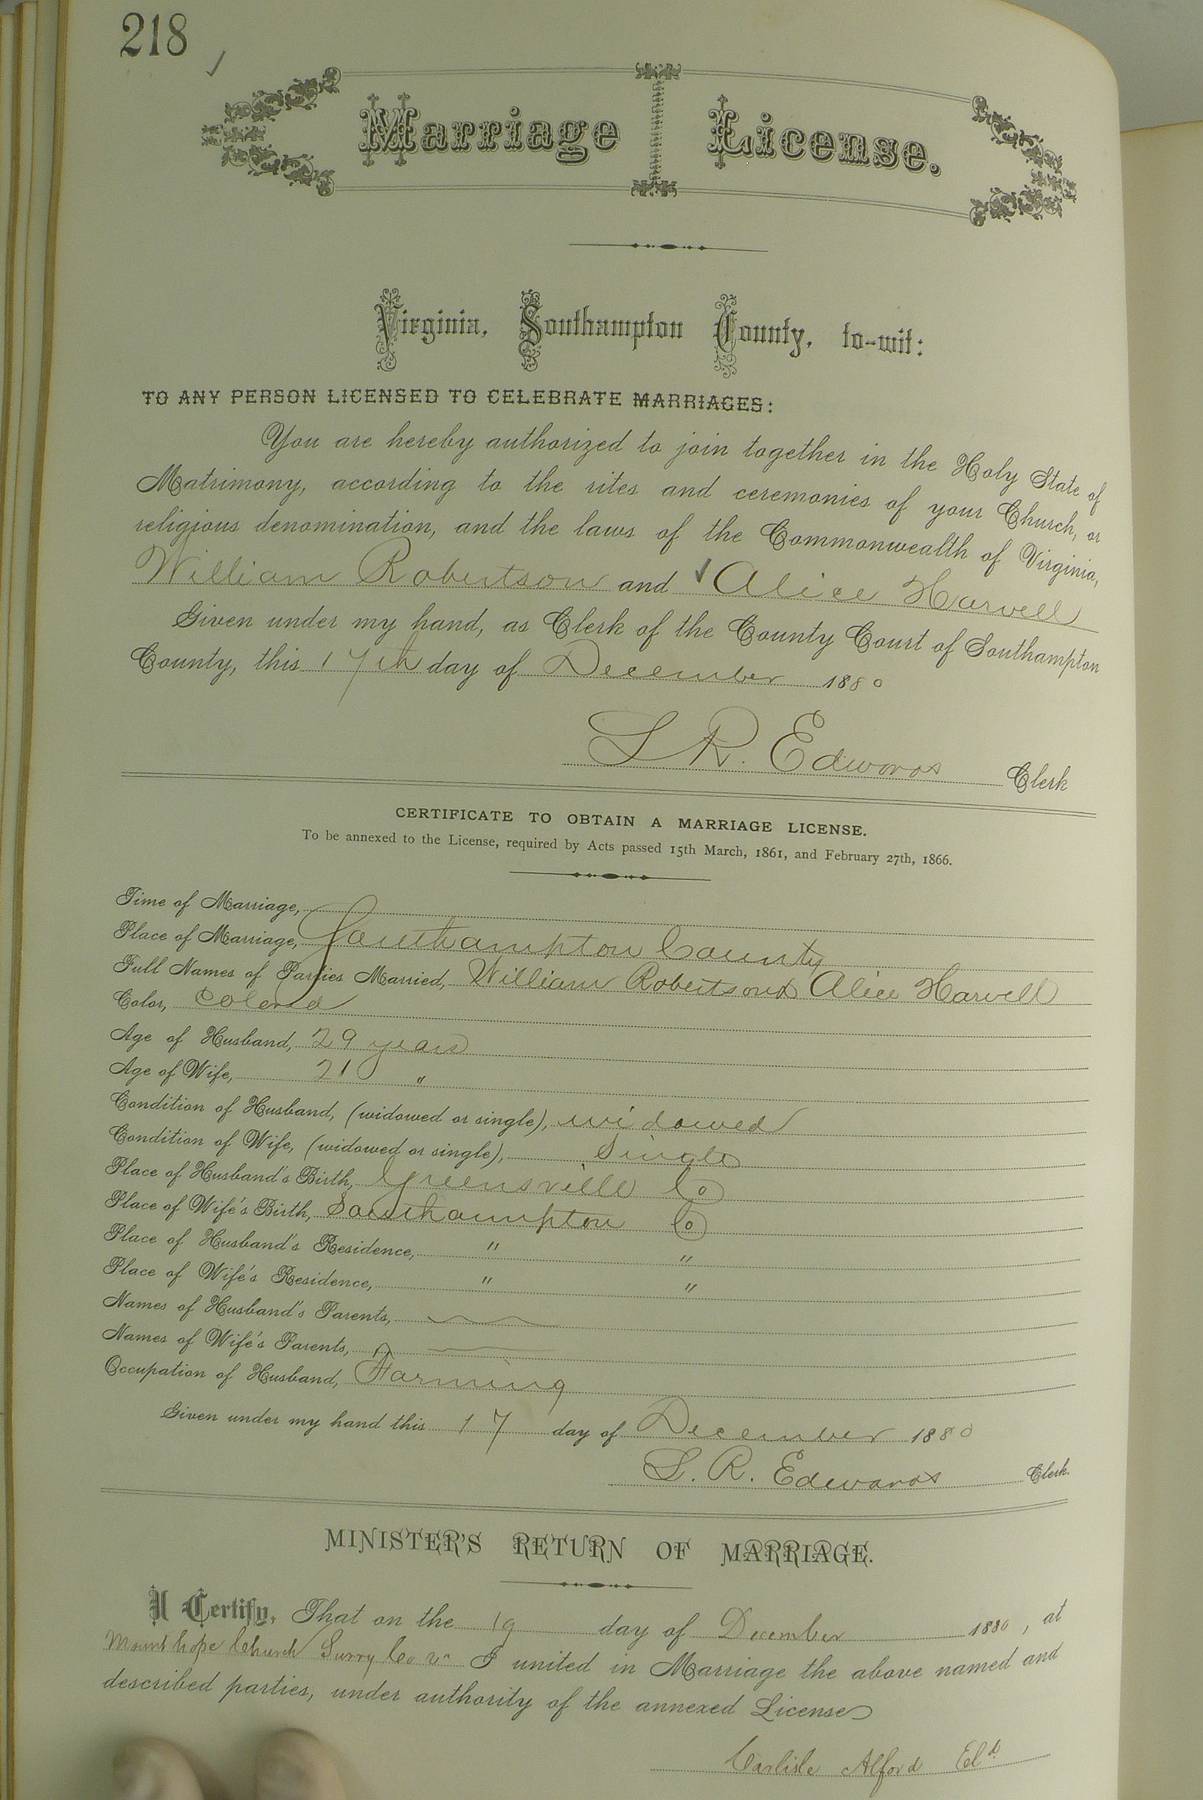 218
Marriage License.
Virginia, Southampton County, to-wit:
TO ANY PERSON LICENSED TO CELEBRATE MARRIAGES:
You are hereby authorized to join together in the Holy State of
Matrimony, according to the rites and ceremonies of your Church, or
religious denomination, and the laws of the Commonwealth of Virginia,
William Robertson and Alice Harvell
Given under my hand, as Clerk of the County Court of Southampton
County, this 17th day of December 1880
L R. Edwards Clerk
CERTIFICATE TO OBTAIN A MARRIAGE LICENSE.
To be annexed to the License, required by Acts passed 15th March, 1861, and February 27th, 1866.
Time of Marriage,
Place of Marriage, Southampton County
Full Names of Parties Married, William Robertson & Alice Harvell
Color, Colored
Age of Husband, 29 years
Age of Wife, 21 "
Condition of Husband, (widowed or single), widowed
Condition of Wife, (widowed or single), Single
Place of Husband's Birth, Greensville Co
Place of Wife's Birth, Southampton Co
Place of Husband's Residence, " "
Place of Wife's Residence, " "
Names of Husband's Parents,
Names of Wife's Parents,
Occupation of Husband, Farming
Given under my hand this 17 day of December 1880
L. R. Edwards Clerk.
MINISTER'S RETURN OF MARRIAGE.
I Certify, That on the 19 day of December 1880, at
Mount hope Church Surry Co va I united in Marriage the above named and
described parties, under authority of the annexed License
Carlisle Alford Eld.